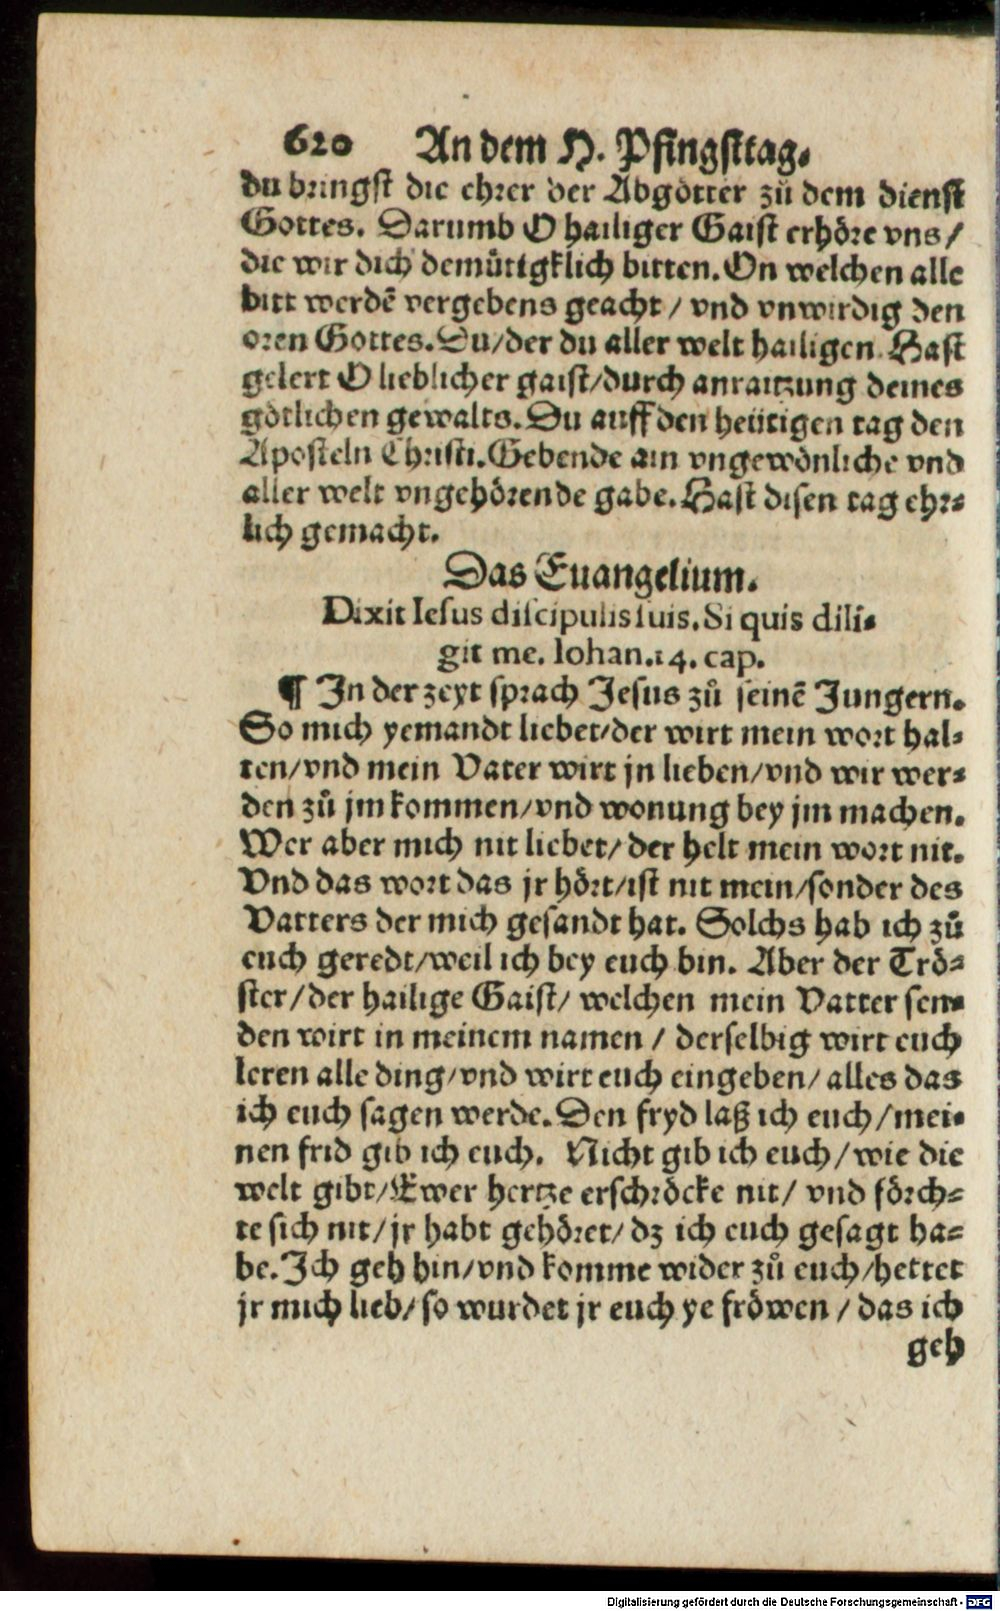 620 An dem H. Pfingsttag.
du bringst die ehrer der Abgötter zů dem dienst
Gottes. Darumb O hailiger Gaist erhöre vns/
die wir dich demütigklich bitten. On welchen alle
bitt werdē vergebens geacht / vnd vnwirdig den
oren Gottes. Du/der du aller welt hailigen. Hast
gelert O lieblicher gaist/durch anraitzung deines
götlichen gewalts. Du auff den heütigen tag den
Aposteln Christi. Gebende ain vngewönliche vnd
aller welt vngehörende gabe. Hast disen tag ehr-
lich gemacht.
Das Euangelium.
Dixit Iesus discipulis suis. Si quis dili-
git me. Iohan. 14. cap.
¶ In der zeyt sprach Jesus zů seinē Jungern.
So mich yemandt liebet/der wirt mein wort hal-
ten/vnd mein Vater wirt jn lieben/vnd wir wer-
den zů jm kommen/vnd wonung bey jm machen.
Wer aber mich nit liebet/ der helt mein wort nit.
Vnd das wort das jr hört/ist nit mein/sonder des
Vatters der mich gesandt hat. Solchs hab ich zů
euch geredt/weil ich bey euch bin. Aber der Trö-
ster/der hailige Gaist/ welchen mein Vatter sen-
den wirt in meinem namen / derselbig wirt euch
leren alle ding/vnd wirt euch eingeben/ alles das
ich euch sagen werde. Den fryd laß ich euch/mei-
nen frid gib ich euch. Nicht gib ich euch/wie die
welt gibt/Ewer hertze erschröcke nit/ vnd förch-
te sich nit/jr habt gehöret/ dz ich euch gesagt ha-
be. Ich geh hin/vnd komme wider zů euch/hettet
jr mich lieb/ so wurdet jr euch ye fröwen / das ich
geh
Digitalisierung gefördert durch die Deutsche Forschungsgemeinschaft - DFG